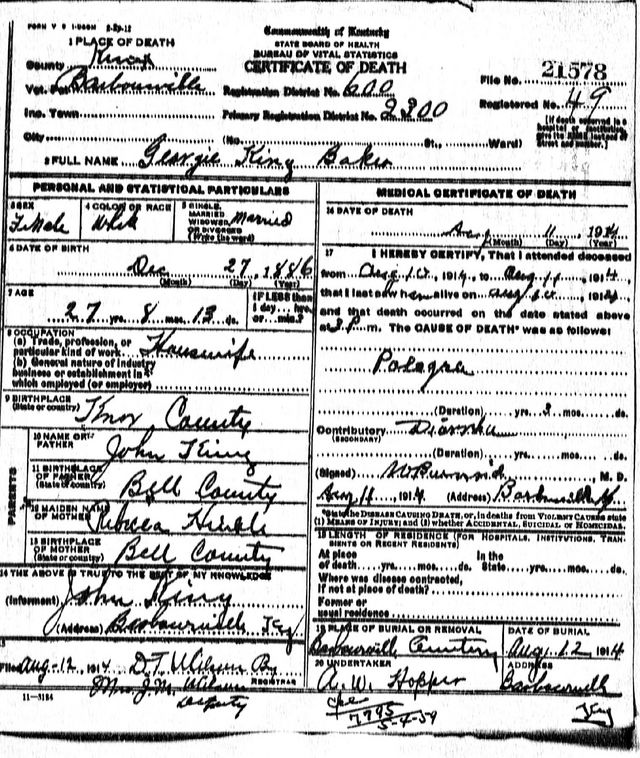 FORM V S 1-
Commonwealth of Kentucky
STATE BOARD OF HEALTH
BUREAU OF VITAL STATISTICS
CERTIFICATE OF DEATH
1 PLACE OF DEATH
County Knox
Vot. Pct. Barbourville
Inc. Town
City
Registration District No. 600
Primary Registration District No. 2300
(No. St., Ward)
File No. 21578
Registered No. 49
[If death occurred in a
hospital or institution,
give its NAME instead of
street and number.]
2 FULL NAME Georgie King Baker
PERSONAL AND STATISTICAL PARTICULARS
3 SEX
Female
4 COLOR OR RACE
White
5 SINGLE,
MARRIED
WIDOWED,
OR DIVORCED
(Write the word)
Married
6 DATE OF BIRTH
Dec 27, 1886
(Month) (Day) (Year)
7 AGE
27 yrs. 8 mos. 13 ds.
IF LESS than
1 day... hrs.
or... min.?
8 OCCUPATION
(a) Trade, profession, or
particular kind of work Housewife
(b) General nature of industry
business or establishment in
which employed (or employer)
9 BIRTHPLACE
(State or country)
Knox County
PARENTS
10 NAME OF
FATHER
John King
11 BIRTHPLACE
OF FATHER
(State or country)
Bell County
12 MAIDEN NAME
OF MOTHER
13 BIRTHPLACE
OF MOTHER
(State or country)
Bell County
14 THE ABOVE IS TRUE TO THE BEST OF MY KNOWLEDGE
(Informant) John King
(Address) Barbourville Ky
15
Filed Aug-12, 1914 D.T. Wilson By
REGISTRAR
Mrs J.M. Wilson
Deputy
11-3184
MEDICAL CERTIFICATE OF DEATH
16 DATE OF DEATH
Aug 11, 1914
(Month) (Day) (Year)
17 I HEREBY CERTIFY, That I attended deceased
from Aug 10, 1914, to Aug 11, 1914
that I last saw her alive on Aug 10, 1914
and that death occurred on the date stated above
at m. The CAUSE OF DEATH* was as follows:
Pelegra
(Duration) yrs. 3 mos. ds.
Contributory
(SECONDARY)
(Duration) yrs. mos. ds.
(Signed) , M. D.
Aug 11, 1914 (Address) Barbourville Ky
*State the DISEASE CAUSING DEATH, or, in deaths from VIOLENT CAUSES state
(1) MEANS OF INJURY; and (2) whether ACCIDENTAL, SUICIDAL OR HOMICIDAL
18 LENGTH OF RESIDENCE (FOR HOSPITALS, INSTITUTIONS, TRAN-
SIENTS OR RECENT RESIDENTS)
At place
of death yrs. mos. ds.
In the
State yrs. mos. ds.
Where was disease contracted,
if not at place of death?
Former or
usual residence
19 PLACE OF BURIAL OR REMOVAL
Barbourville Cemetery
DATE OF BURIAL
Aug 12 1914
20 UNDERTAKER
A. W. Hopper
ADDRESS
Barbourville
Ky
7795
5-4-39